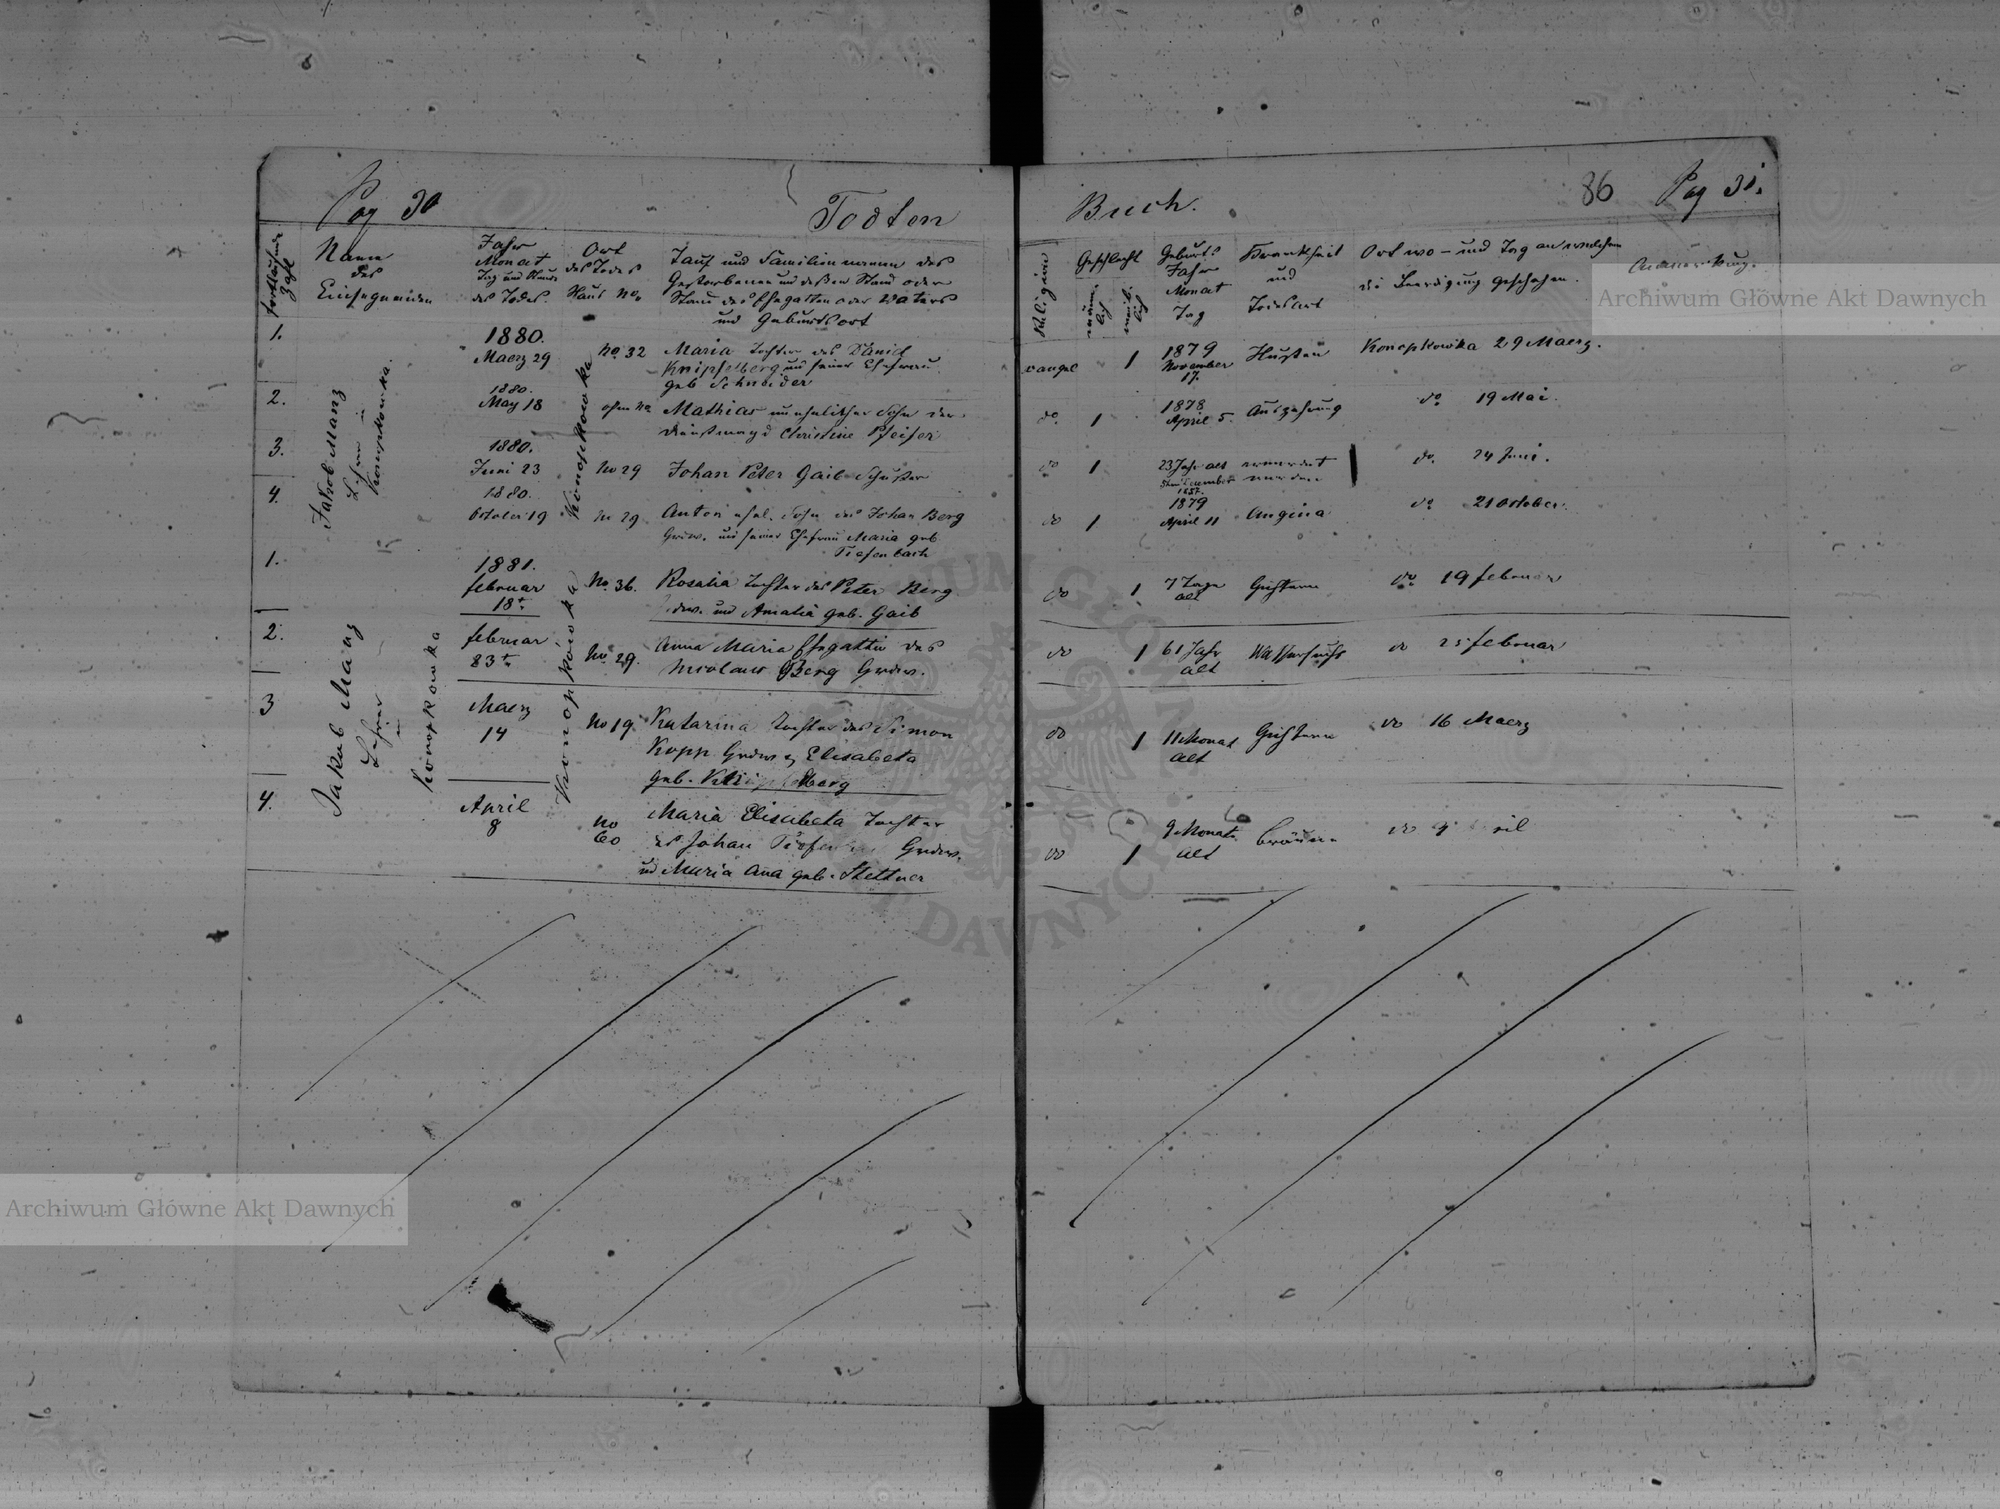 Pag 30
Todten
Buch.
86
Pag 31.
fortlaufende Zahl
Name
des
Einsegnenden
Jahr
Monat
Tag und Stunde
des Todes
Ort
des Todes
Haus No.
Tauf und Familien namen des
Gestorbenen und deßen Stand oder
Stand des Ehegatten oder Vaters
und Geburtsort
Religion
Geschlecht
männlich
weiblich
Geburts
Jahr
Monat
Tag
Krankheit
und
Todesart
Ort wo – und Tag an welchem
die Beerdigung geschehen.
Anmerkung.
Jakob Manz
Lehrer in
Konopkowka.
Konopkowka
1.
1880.
Maerz 29
No 32
Maria Tochter des Daniel
Knipfelberg und seiner Ehefrau
geb Schneider
evangel
1
1879
November
17.
Husten
Konopkowka 29 Maerz.
2.
1880.
May 18
ohne No
Mathias unehelicher Sohn der
Dienstmagd Christine Pfeifer
do.
1
1878
April 5.
Auszehrung
do 19 Mai.
3.
1880.
Juni 23
No 29
Johan Peter Gaib Schuster
do
1
23 Jahr alt
December
1857.
ermordet
worden
do. 24 Juni.
4.
1880.
October 19
No 29
Anton ehel. Sohn des Johan Berg
Grdw. und seiner Ehefrau Maria geb
Tiefenbach
do
1
1879
April 11
Angina
do 21 October.
Jakob Manz
Lehrer
in
Konopkowka
Konopkowka
1.
1881.
februar
18t.
No. 36.
Rosalia Tochter des Peter Berg
Grdw. und Amalia geb. Gaib
do
1
7 Tage
alt
Gichtern
do 19 februar
2.
februar
83t.
No. 29.
Anna Maria Ehegattin des
Nicolaus Berg Grdw.
do
1
61 Jahr
alt
Wassersucht
do 25 februar
3
Maerz
14
No 19.
Katarina Tochter des Simon
Kopp Grdw u Elisabeta
geb. Knipfelberg
do
1
11 Monat
alt
Gichtern
do 16 Maerz
4.
April
8
No
60
Maria Elisabeta Tochter
des Johan Grdw.
und Maria Ana geb. Stettner
do
1
9 Monat
alt
Bräune
do
Archiwum Główne Akt Dawnych
Archiwum Główne Akt Dawnych